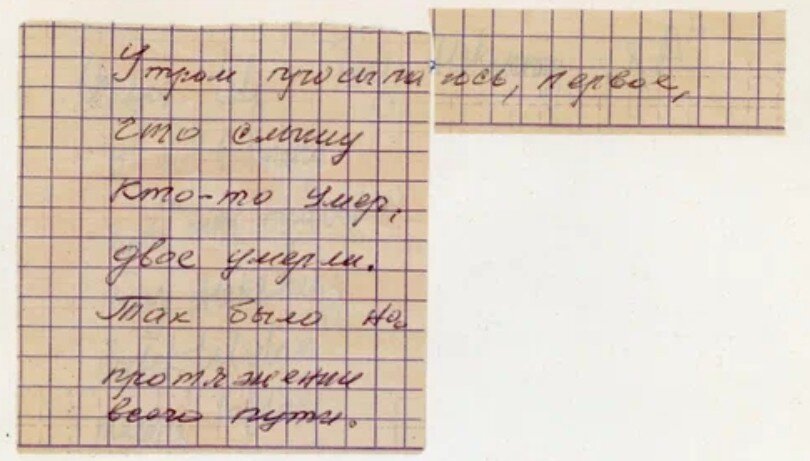 Утром просыпаюсь, первое,
что слышу
Кто-то умер,
двое умерли.
Так было на
протяжении
всего пути.